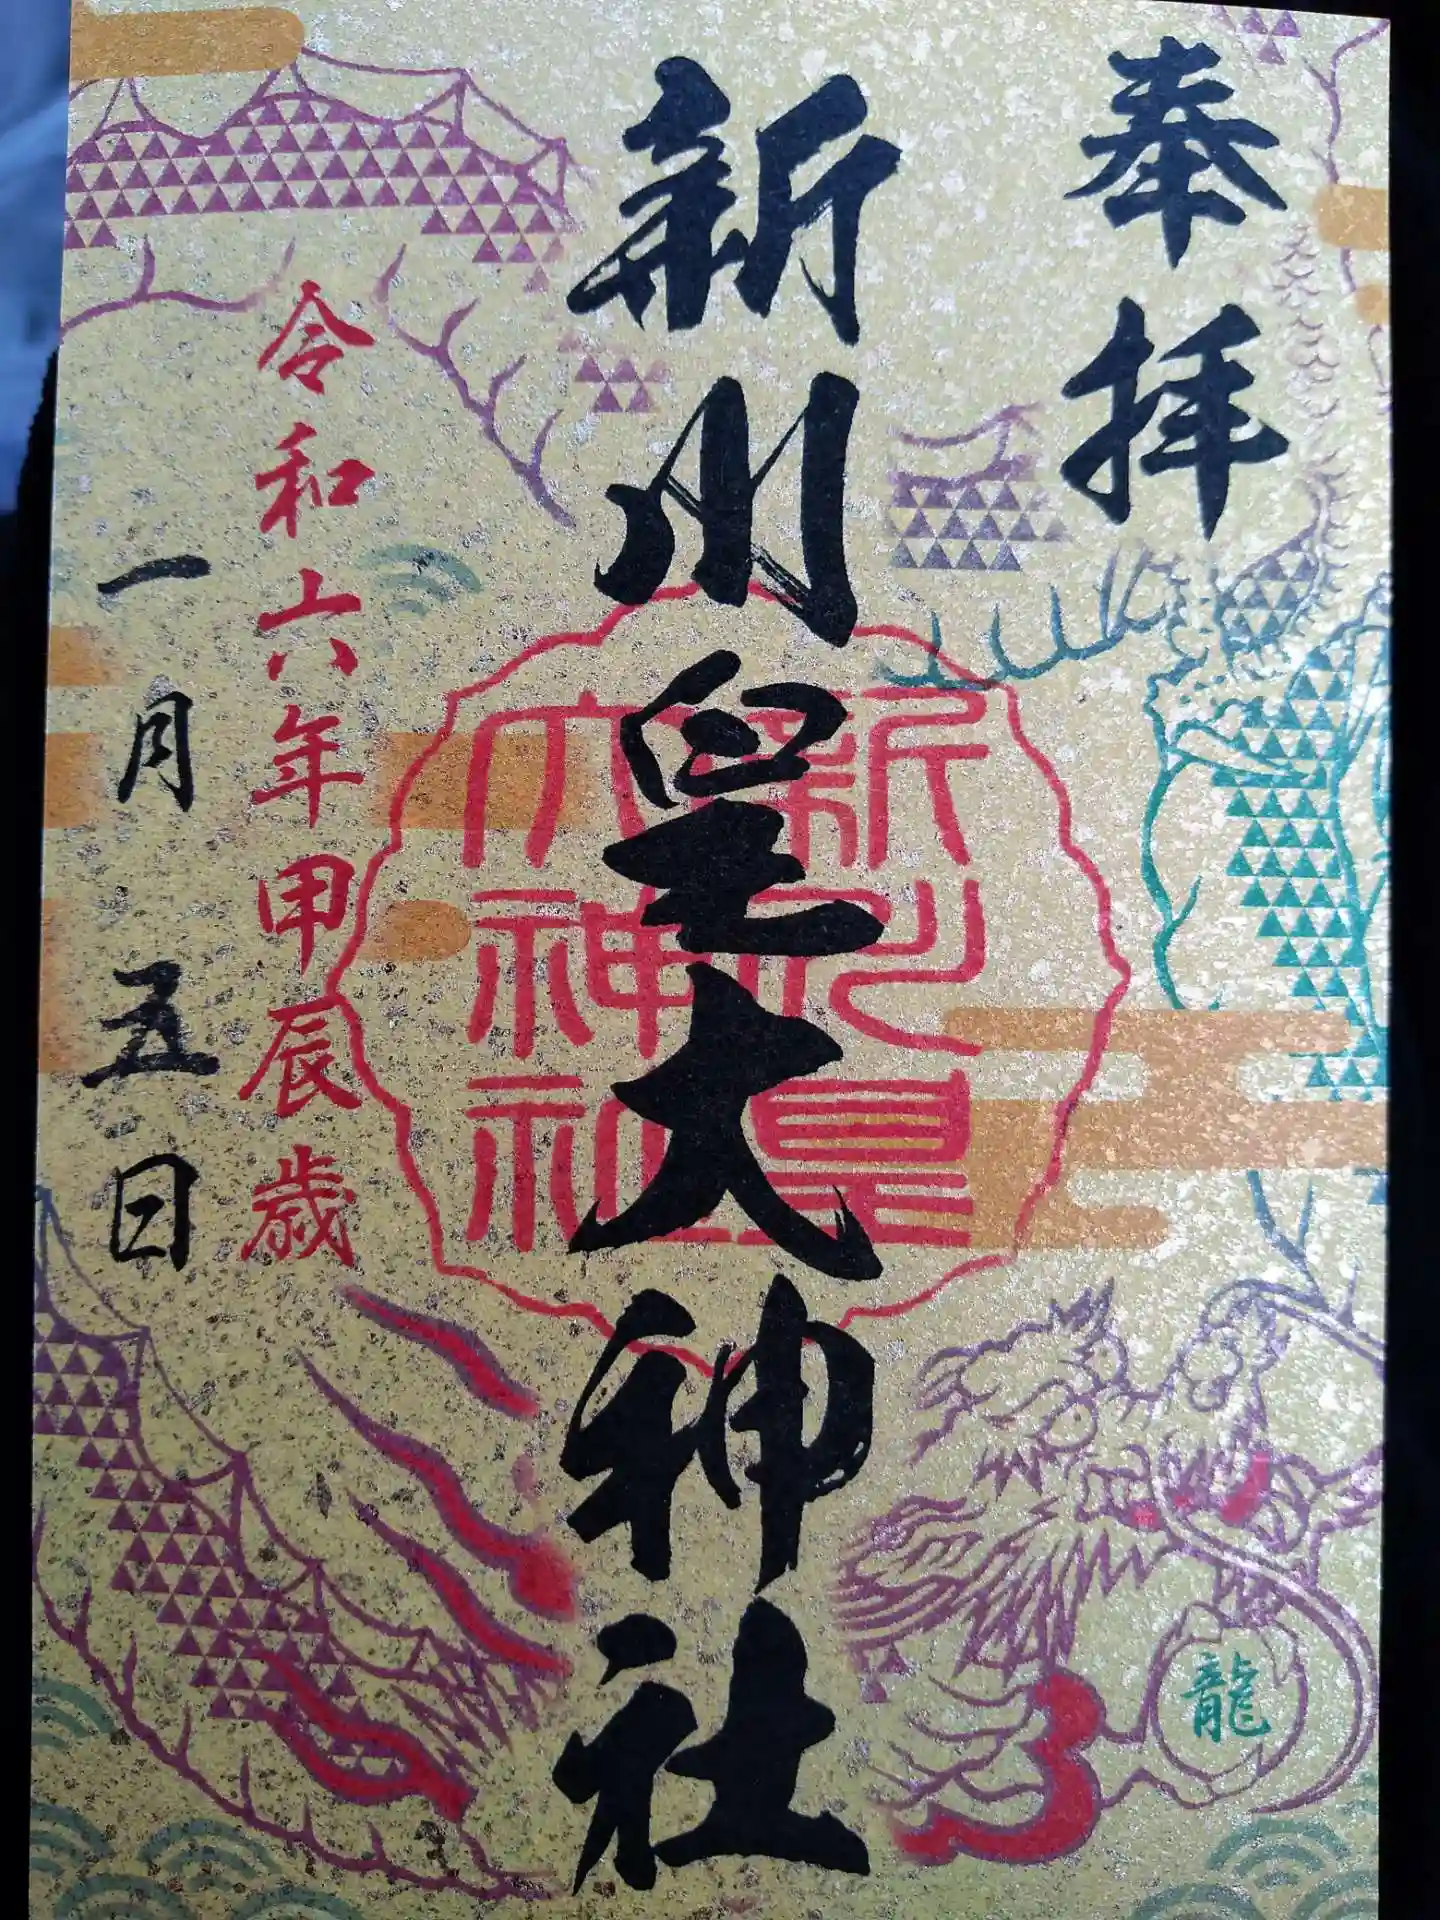 奉拝
新川皇大神社
新川皇
大神社
令和六年甲辰歳
一月五日
龍